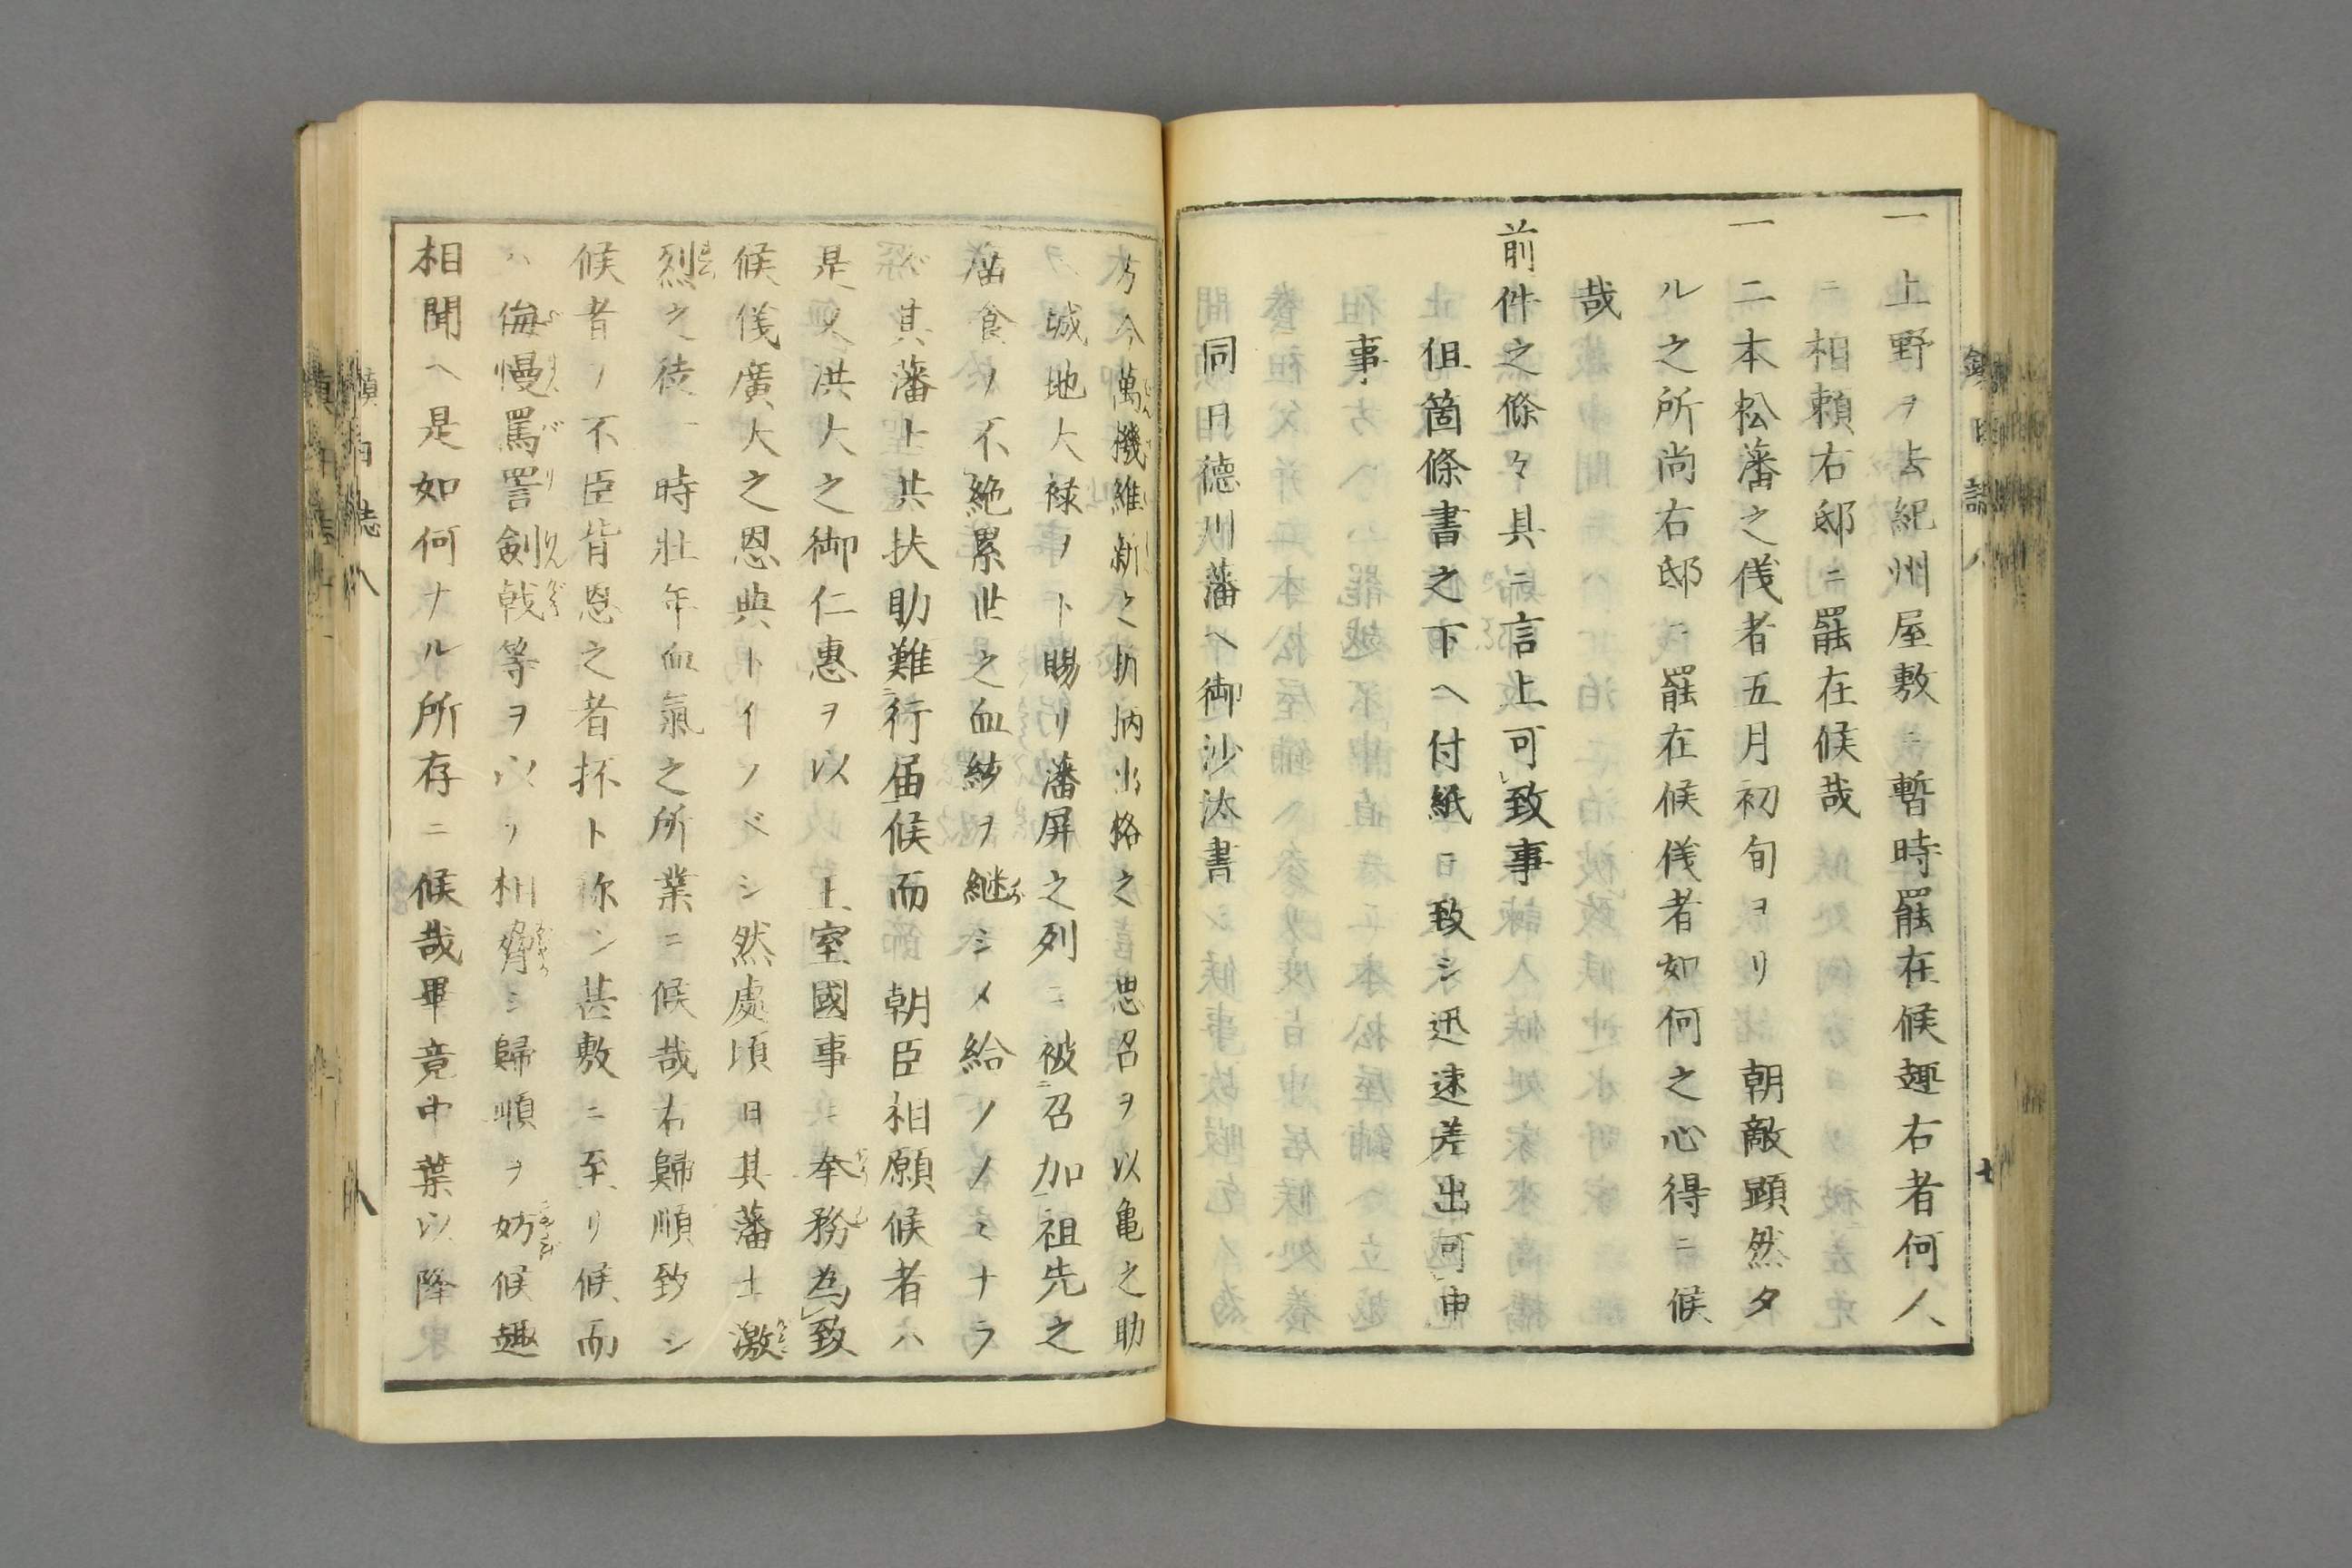 一上野ヲ去紀州屋敷ニ暫時罷在候趣右者何人
ニ相頼右邸ニ罷在候哉
一二本松藩之儀者五月初旬ヨリ 朝敵顕然タ
ル之所尚右邸ニ罷在候儀者如何之心得ニ候
哉
前件之條々具ニ言上可致事
但箇條書之下ヘ付紙ニ致シ迅速差出可申
事
同日徳川藩ヘ御沙汰書
方今萬機維新之折柄出格之 思召ヲ以亀之助
ヘ城地大禄ヲ下賜リ藩屏之列ニ被召加祖先之
庿食ノ不絶累世之血緒ヲ継シメ給ノノミナラ
ズ其藩士共扶助難行届候而 朝臣相願候者ハ
是又洪大之御仁惠ヲ以 王室國事ニ奉務為致
候儀廣大之恩典トイノベシ然處頃日其藩士激
烈之徒一時壮年血氣之所業ニ候哉右歸順致シ
候者ノ不臣背恩之者抔ト称シ甚敷ニ至リ候而
ハ侮慢罵詈劍戟等ヲ以テ相脅シ歸順ヲ妨候趣
相聞ヘ是如何ナル所存ニ候哉畢竟中葉以降
鎮日誌八
七
八